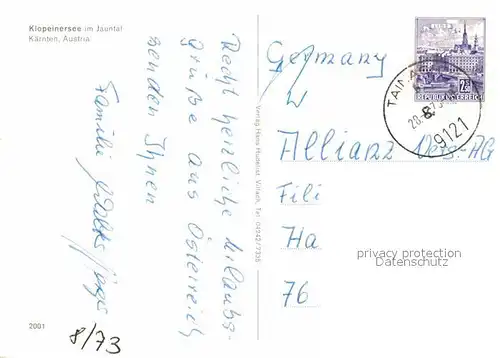 Klopeinersee im Jauntal
Kärnten, Austria
Recht herzliche Urlaubs-
grüße aus Österreich
senden Ihnen
Familie
2001
8/73
Verlag Hans Huderlist, Villach, Tel. 04242/7326
Germany
W
Allianz Vers.-AG
Fili
Ha
76
REPUBLIK ÖSTERREICH
9121
privacy protection
Datenschutz